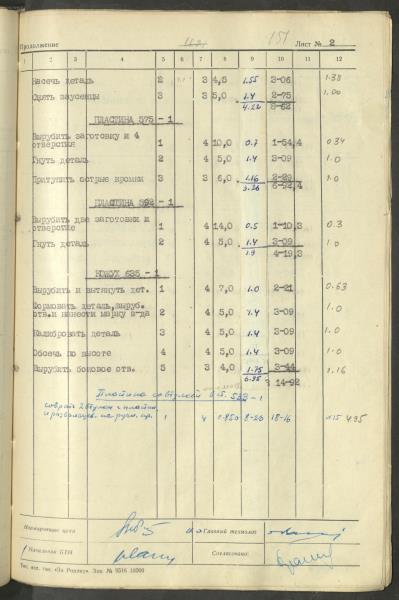 Продолжение 151 Лист № 2
1 2 3 4 5 6 7 8 9 10 11 12
Насечь деталь 2 3 4,5 1.55 3-06 1.38
Снять заусенцы 3 3 5,0 1.4 2-75 1.00
4.22 8-62
ПЛАСТИНА 575 - 1
Вырубить заготовку и 4
отверстия 1 4 10,0 0.7 1-54,4 0.34
Гнуть деталь 2 4 5,0 1.4 3-09 1.0
Притупить острые кромки 3 3 6,0 1.16 2-29 1.0
3.26 6-92,4
ПЛАСТИНА 592 - 1
Вырубить две заготовки и
отверстие 1 4 14,0 0.5 1-10,3 0.3
Гнуть деталь 2 4 5,0 1.4 3-09 1.0
1.9 4-19,3
КОЖУХ 635 - 1
Вырубить и вытянуть дет. 1 4 7,0 1.0 2-21 0.63
Формовать деталь, выруб.
отв. и нанести марку з-да 2 4 5,0 1.4 3-09 1.0
Калибровать деталь 3 4 5,0 1.4 3-09 1.0
Обсечь по высоте 4 4 5,0 1.4 3-09 1.0
Вырубить боковое отв. 5 3 4,0 1.75 3-44 1.16
6.95 14-92
Пластина со втулкой 533 - 1
собрать 2 втулки с пластин.
1 4 0.850 8-20 18-16 495
Нормировщик цеха Главный технолог
Начальник БТН Согласовано:
Тип. изд. газ. «За Родину». Зак. № 9516 10000